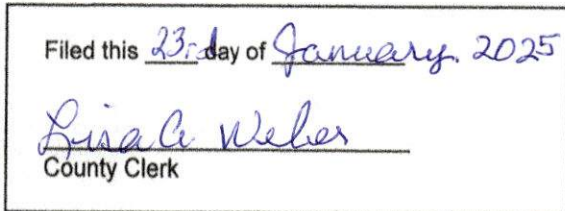 Filed this 23rd day of January, 2025
Lisa A Weber
County Clerk